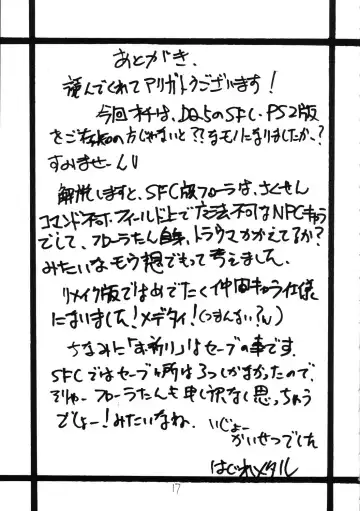 あとがき.
読んでくれてアリガトウございます!
今回オチは、DQ5のSFC・PS2版
をご存知の方じゃないと??なモノになりましたか、?
すみませーんU
解説しますと、SFC版フローラは、さくせん
コマンド不可・フィールド上で 不可なNPCキャラ
でして、フローラたん自身、トラウマかかえてるか?
みたいなモウ想でもって考えました。
リメイク版ではめでたく仲間キャラ仕様
になりました!メデタイ!(つまんない?ん)
ちなみに「お祈り」はセーブの事です。
SFCではセーブヶ所は3つしかなかったので、
そりゃーフローラたんも申し訳なく思っちゃう
でしょー!みたいなね。
いじょー
かいせつでした
はじれメタル
17